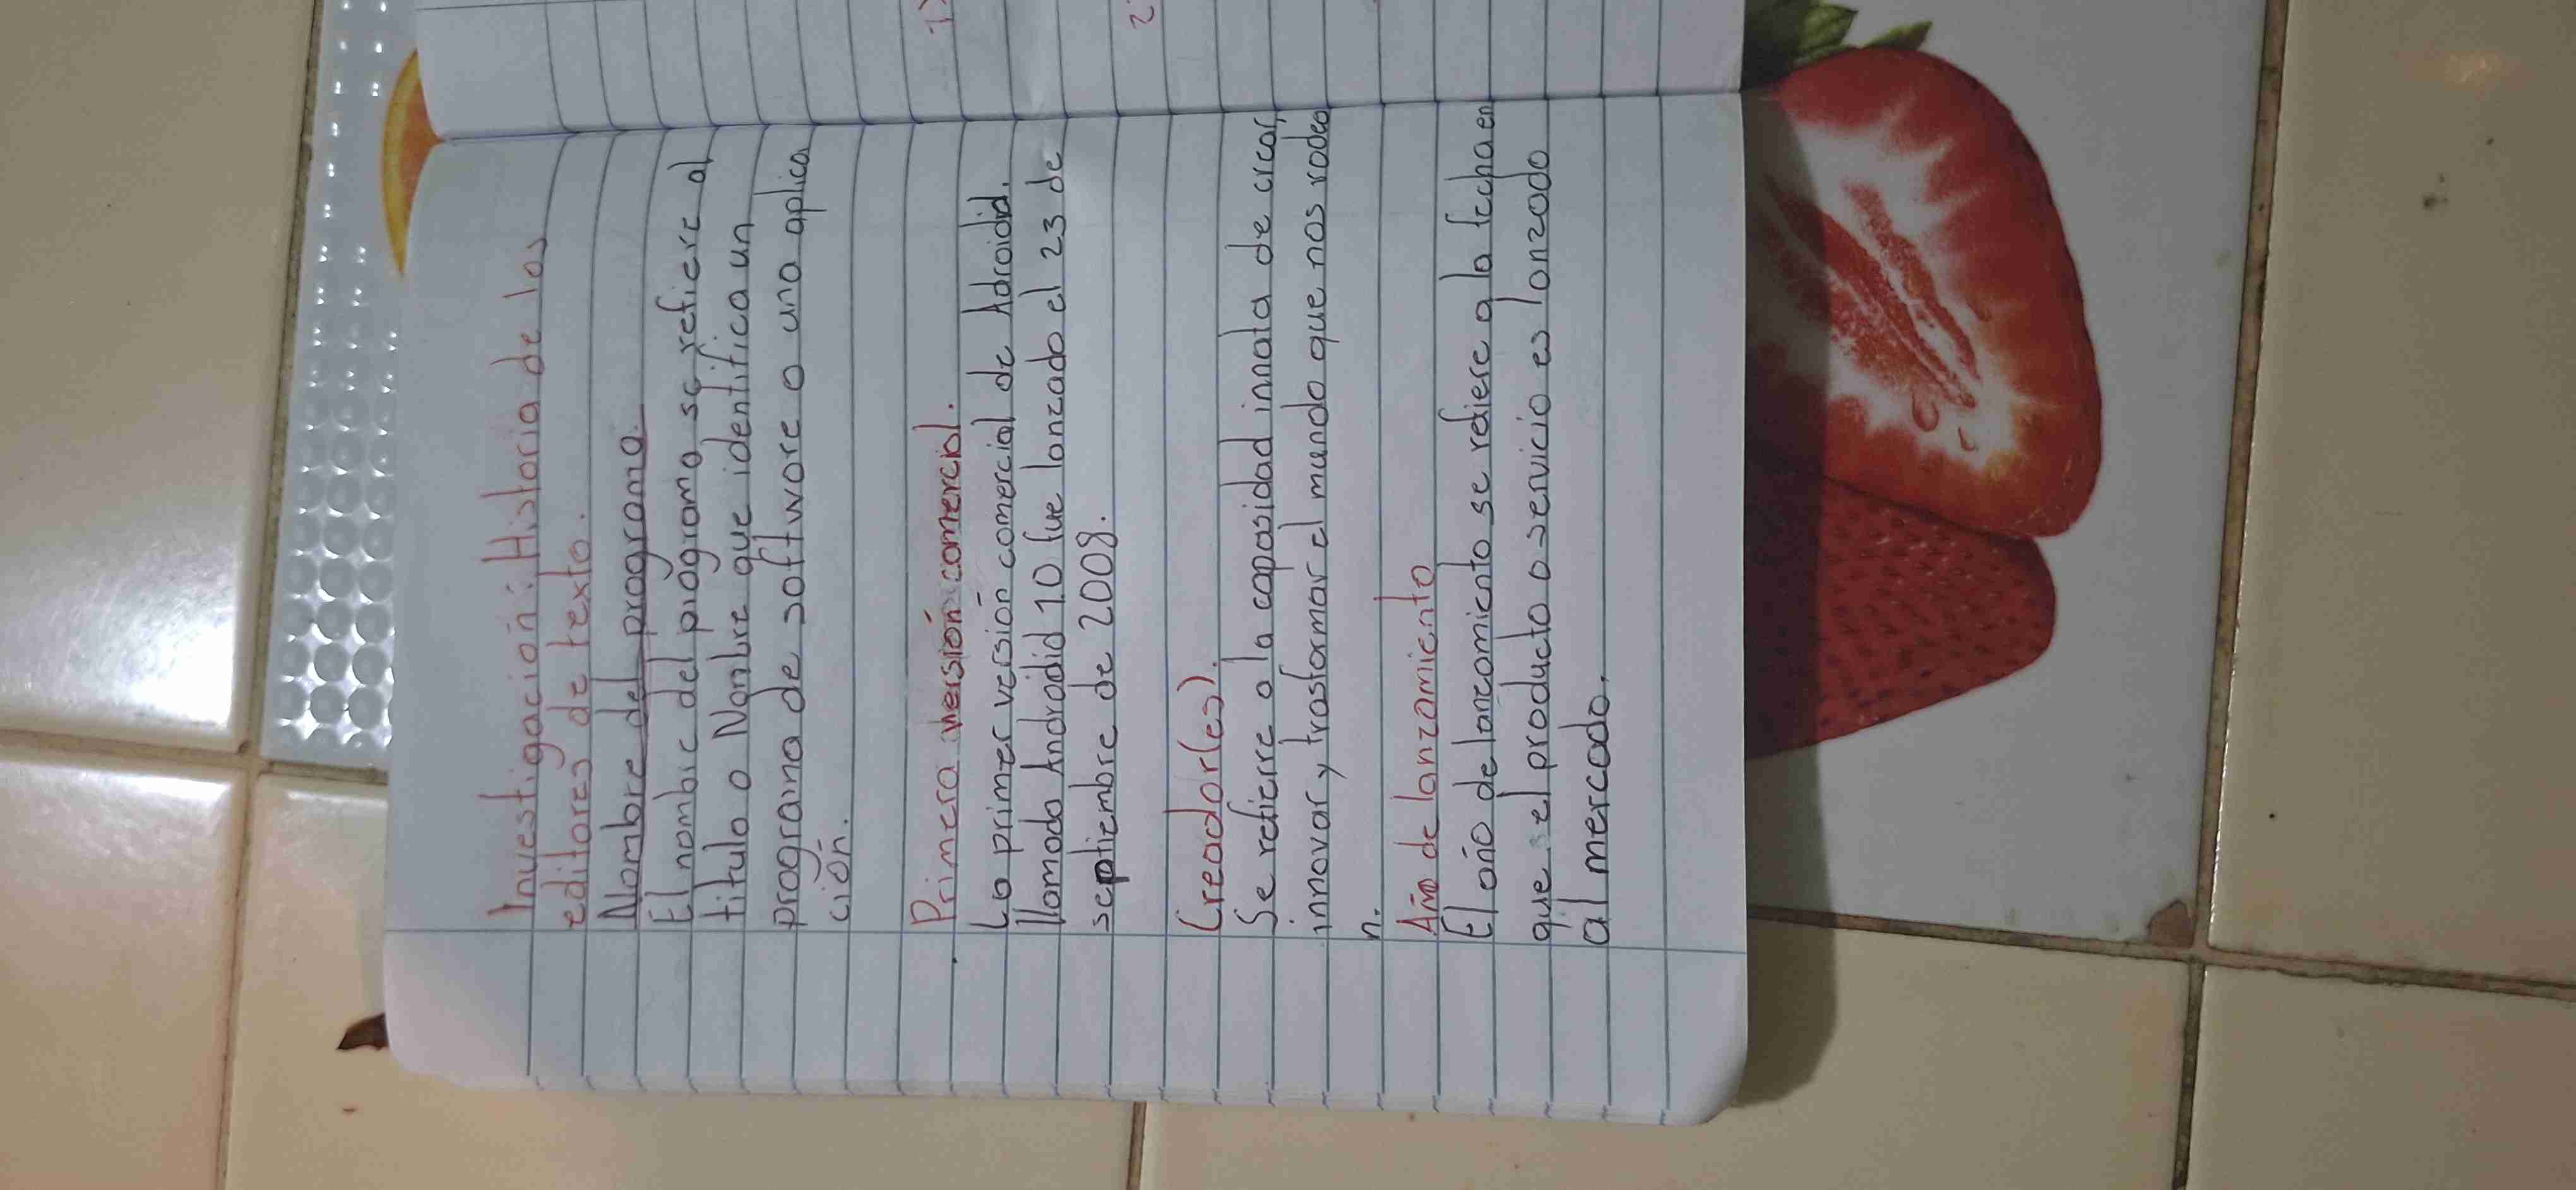 Investigación: Historia de los
editores de texto.
Nombre del programa.
El nombre del programa se refiere al
titulo o Nonbre que identifica un
programa de software o una aplica
ción.
Primera versión comercial.
La primer versión comercial de Adroidid.
llamada Androdid 1.0 fue lanzado el 23 de
septiembre de 2008.
Creador(es).
Se refierre a la capasidad innata de crear,
innovar y trasformar el mundo que nos rodea
n.
Año de lanzamiento
El año de lanzamiento se refiere a la fecha en
que el producto o servicio es lanzado
al mercado.
1)
2